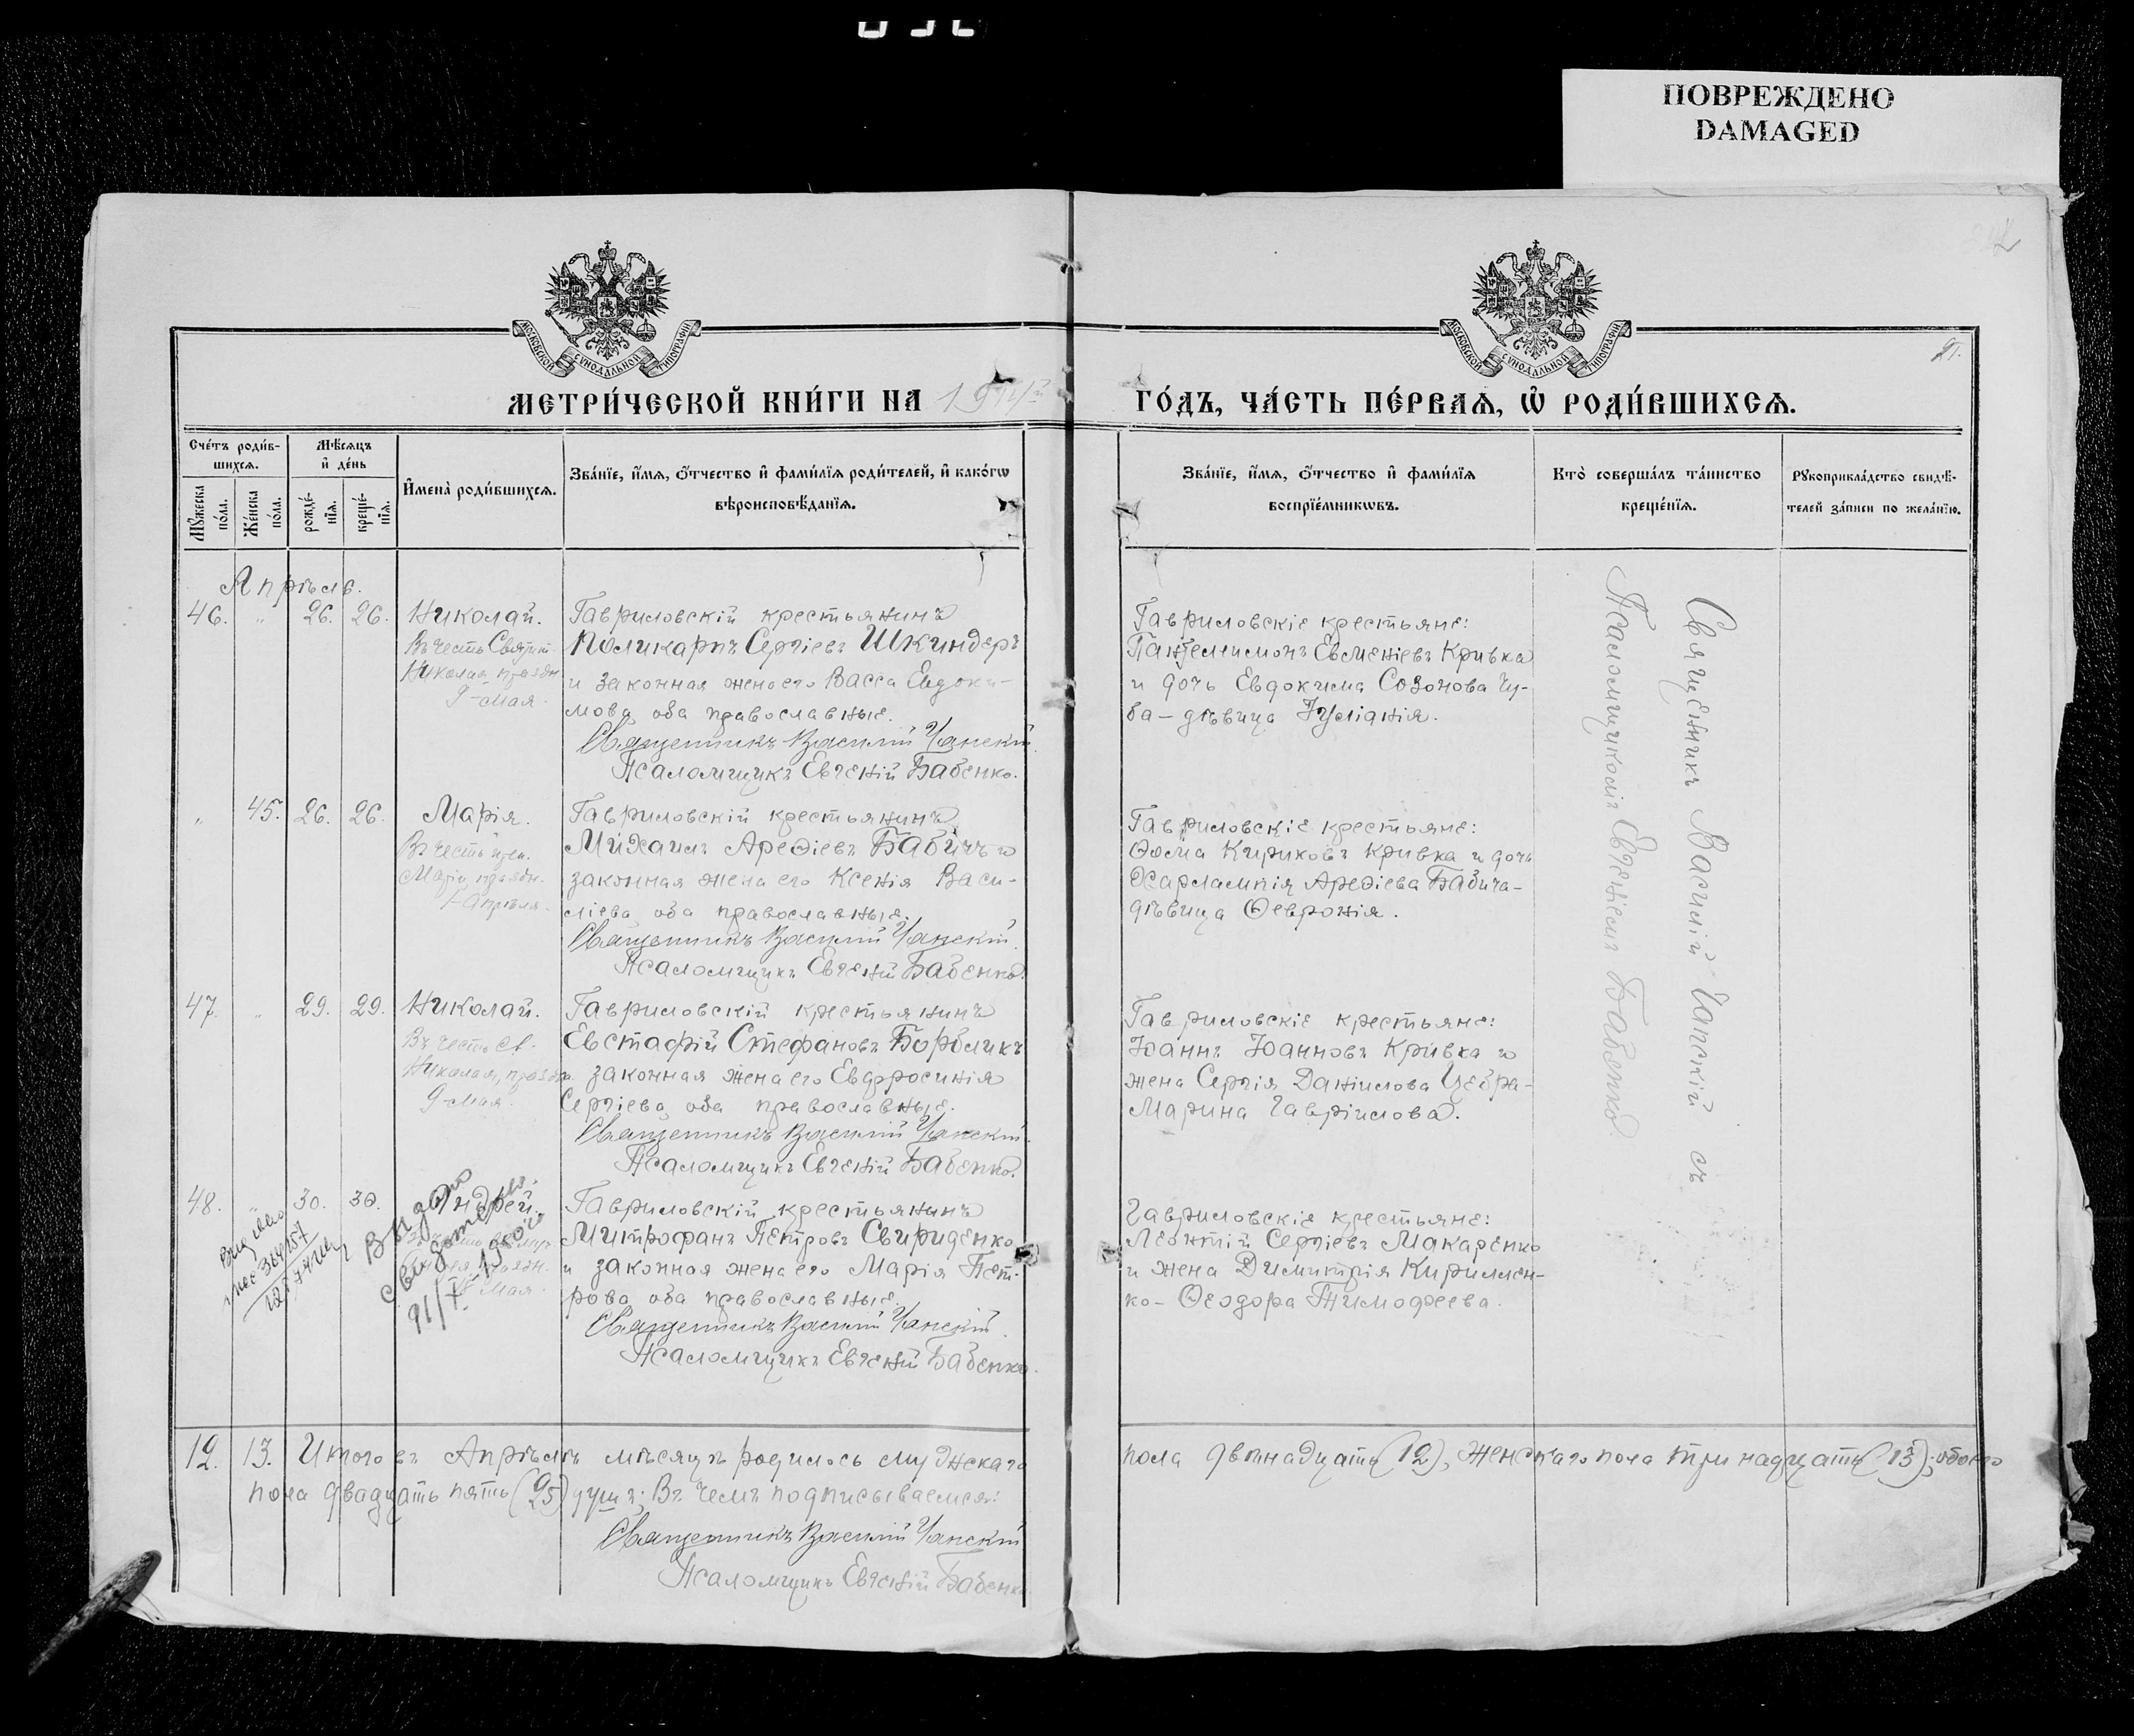 ПОВРЕЖДЕНО
DAMAGED
МОСКОВСКОЙ СѴНОДАЛЬНОЙ ТИПОГРАФІИ
МОСКОВСКОЙ СѴНОДАЛЬНОЙ ТИПОГРАФІИ
МЕТРИ́ЧЕСКОЙ КНИ́ГИ НА
ГО́ДЪ, ЧА́СТЬ ПЕ́РВАѦ, Ѡ҆ РОДИ́ВШИХСѦ.
Сче́тъ роди́в-
шихсѧ.
Мѣ́сѧцъ
и҆ де́нь
Мꙋ́жеска
по́ла.
Же́нска
по́ла.
рожде́-
нїѧ.
креще́-
нїѧ.
И҆мена̀ роди́вшихсѧ.
Зва́нїе, и҆́мѧ, ѻ҆́тчество и҆ фами́лїѧ роди́телей, и҆ како́гѡ
вѣроисповѣ́данїѧ.
Зва́нїе, и҆́мѧ, ѻ҆́тчество и҆ фами́лїѧ
воспрїе́мникѡвъ.
Кто̀ соверша́лъ та́инство
креще́нїѧ.
Рꙋкоприкла́дство свидѣ́-
телей за́писи по жела́нїю.
Апрѣль.
46. " 26. 26. Николай.
Въ честь Святит.
Николая, праздн.
9-мая.
Гавриловскій крестьянинъ
Поликарпъ Сергіевъ Шкиндеръ
и законная жена его Васса Евдоки-
мова, оба православные.
Священникъ Василій Чанскій.
Псаломщикъ Евгеній Бабенко.
Гавриловскіе крестьяне:
Пантелеимонъ Евменіевъ Кривка
и дочь Евдокима Созонова Чу-
ба - дѣвица Іуліанія.
" 45. 26. 26. Марія.
Въ честь преп.
Маріи, праздн.
1-апрѣля.
Гавриловскій крестьянинъ
Михаилъ Ареѳіевъ Бабичъ и
законная жена его Ксенія Васи-
ліева, оба православные.
Священникъ Василій Чанскій.
Псаломщикъ Евгеній Бабенко.
Гавриловскіе крестьяне:
Ѳома Кириковъ Кривка и дочь
Харлампія Ареѳіева Бабича-
дѣвица Ѳевронія.
47. " 29. 29. Николай.
Въ честь Св.
Николая, праздн.
9-мая.
Гавриловскій крестьянинъ
Евстафій Стефановъ Борбликъ
и законная жена его Евфросинія
Сергіева, оба православные.
Священникъ Василій Чанскій.
Псаломщикъ Евгеній Бабенко.
Гавриловскіе крестьяне:
Іоаннъ Іоанновъ Кривка и
жена Сергія Даніилова Цебра-
Марина Гавріилова.
48. " 30. 30. Андрей.
Мая.
Выдано
Гавриловскій крестьянинъ
Митрофанъ Петровъ Свириденко
и законная жена его Марія Пет-
рова, оба православные.
Священникъ Василій Чанскій.
Псаломщикъ Евгеній Бабенко.
Гавриловскіе крестьяне:
Леонтій Сергіевъ Макаренко
и жена Димитрія Кириллен-
ко - Ѳеодора Тимофеева.
Священникъ Василій Чанскій съ
Псаломщикомъ Евгеніемъ Бабенко.
12. 13. Итого въ Апрѣлѣ мѣсяцѣ родилось мужскаго
пола двѣнадцать (12), женскаго пола тринадцать (13); обоего
пола двадцать пять (25) душъ; Въ чемъ подписываемся:
Священникъ Василій Чанскій
Псаломщикъ Евгеній Бабенко